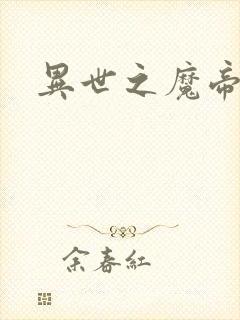 異世之魔帝
余春紅